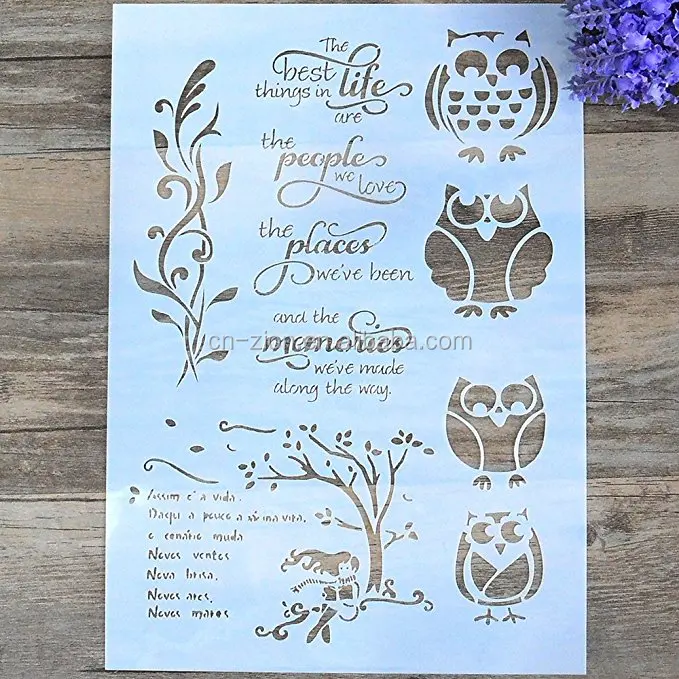 The
best
things in life
are
the
people
we love
the
places
we've been
and the
memories
we've made
along the way.
Assim é a vida.
Daqui a pouco a
e cenário muda
Novos ventos
Nova brisa.
Novos ares.
Novos mares